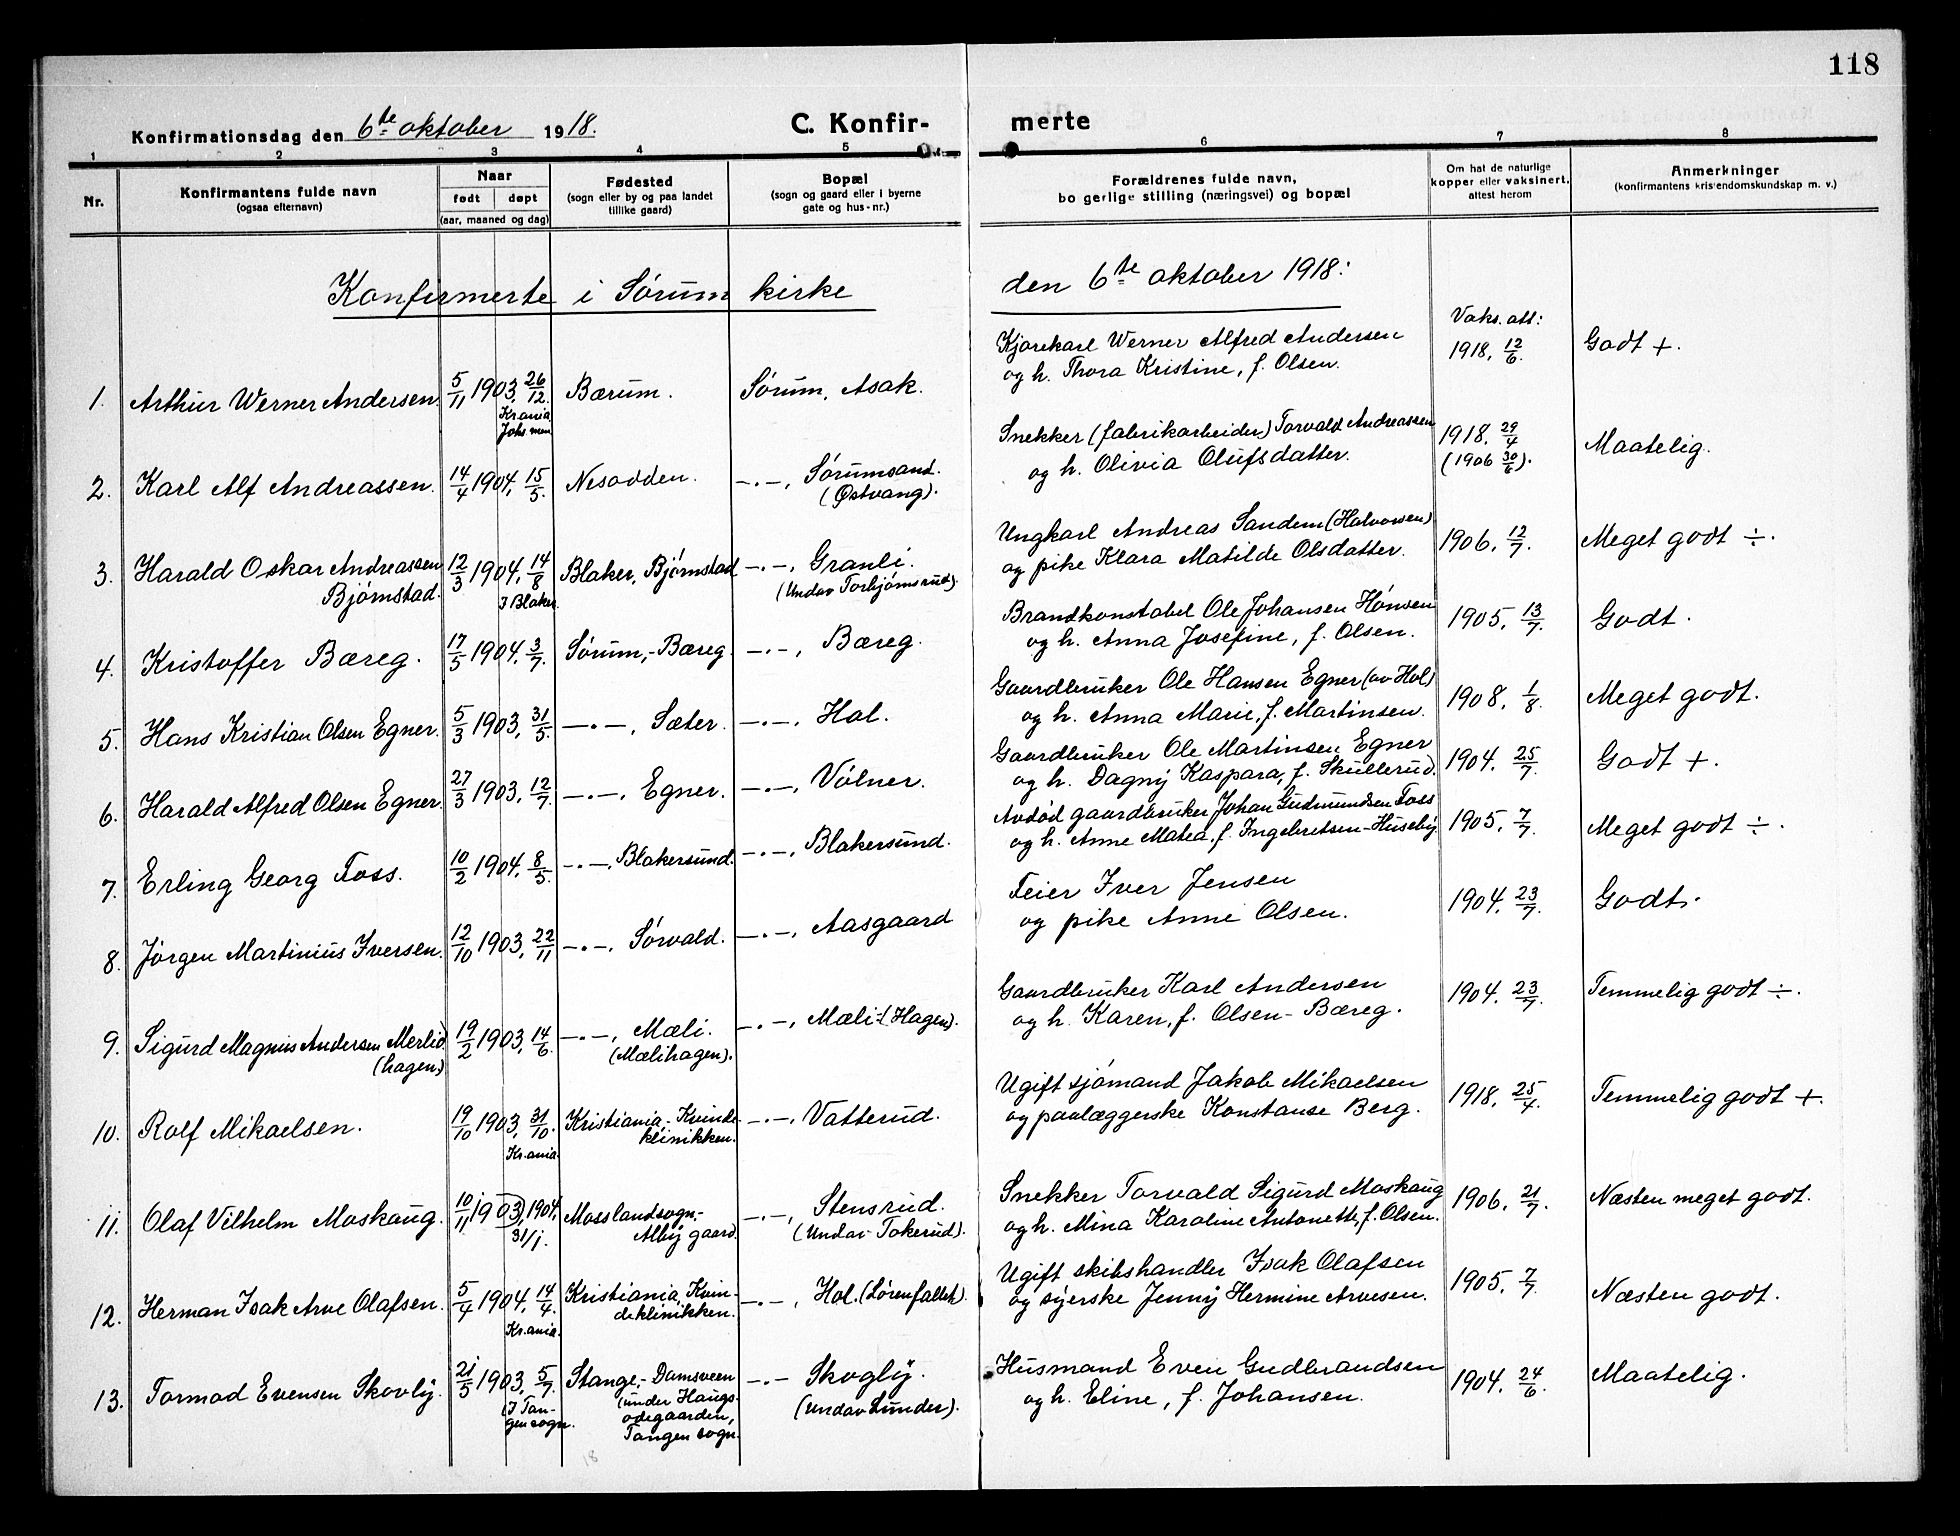 118
Konfirmationsdag den 6te oktober 1918.
C. Konfirmerte
1 2 3 4 5 6 7 8
Nr.
Konfirmantens fulde navn
(ogsaa efternavn)
Naar
født døpt
(aar, maaned og dag)
Fødested
(sogn eller by og paa landet
tillike gaard)
Bopæl
(sogn og gaard eller i byerne
gate og hus-nr.)
Forældrenes fulde navn,
bo gerlige stilling (næringsvei) og bopæl
Om hat de naturlige
kopper eller vaksinert,
attest herom
Anmerkninger
(konfirmantens kristendomskundskap m. v.)
Konfirmerte i Sørum kirke den 6te oktober 1918:
Vaks. att:
1. Arthur Werner Andersen. 5/11 1903, 26/12. Kr.ania Johs. men Bærum. Sørum, Asak.
Kjørekarl Werner Alfred Andersen
og h. Thora Kristine, f. Olsen.
1918, 12/6. Godt +.
2. Karl Alf Andreassen. 14/4 1904, 15/5. Nesodden. —·—, Sørumsand.
(Østvang).
Snekker (fabrikarbeider) Torvald Andreassen
og h. Olivia Olufsdatter.
1918, 29/4
(1906 30/6).
Maatelig.
3. Harald Oskar Andreassen
Bjørnstad.
12/3 1904, 14/8
I Blaker.
Blaker, Bjørnstad —·—, Granli.
(Undav Torbjørnsrud).
Ungkarl Andreas Sandem (Halvorsen)
og pike Klara Matilde Olsdatter.
1906, 12/7. Meget godt ÷.
4. Kristoffer Bæreg. 17/5 1904, 3/7. Sørum, - Bæreg. —·—, Bæreg.
Brandkonstabel Ole Johansen Hønsen
og h. Anna Josefine, f. Olsen.
1905, 13/7. Godt.
5. Hans Kristian Olsen Egner. 5/3 1903, 31/5. —·—, Sæter. —·—, Hol.
Gaardbruker Ole Hansen Egner (av Hol)
og h. Anna Marie, f. Martinsen.
1908, 1/8. Meget godt.
6. Harald Alfred Olsen Egner. 27/3 1903, 12/7. —·—, Egner. —·—, Vølner.
Gaardbruker Ole Martinsen Egner
og h. Dagny Kaspara, f. Skullerud.
1904, 25/7. Godt +.
7. Erling Georg Foss. 10/2 1904, 8/5. —·—, Blakersund. —·—, Blakersund.
Avdød gaardbruker Johan Gudmundsen Foss
og h. Anne Matea, f. Ingebretsen-Huseby
1905, 7/7. Meget godt ÷.
8. Jørgen Martinius Iversen. 12/10 1903, 22/11 —·—, Sørvald. —·—, Aasgaard
Feier Iver Jensen
og pike Anne Olsen.
1904, 23/7. Godt.
9. Sigurd Magnus Andersen Merlid
(hagen)
19/2 1903, 14/6 —·—, Mæli.
(Mælihagen).
—·—, Mæli (Hagen).
Gaardbruker Karl Andersen
og h. Karen, f. Olsen-Bæreg.
1904, 23/7. Temmelig godt ÷.
10. Rolf Mikaelsen. 19/10 1903, 31/10
Kr.ania.
Kristiania, Kvinde-
klinikken.
—·—, Vatterud.
Ugift sjømand Jakob Mikaelsen
og paalæggerske Konstanse Berg.
1918, 25/4. Temmelig godt +.
11. Olaf Vilhelm Moskaug. 10/11 1903, 1904,
31/1.
Mosslandsogn,-
Alby gaard.
—·—, Stensrud.
(Undav Tokerud).
Snekker Torvald Sigurd Moskaug
og h. Mina Karoline Antonette, f. Olsen.
1906, 21/7. Næsten meget godt.
12. Herman Isak Arve Olafsen. 5/4 1904, 14/4.
Kr.ania.
Kristiania, Kvin-
deklinikken.
—·—, Hol. (Lørenfallet).
Ugift skibshandler Isak Olafsen
og syerske Jenny Hermine Arvesen.
1905, 7/7. Næsten godt.
13. Tormod Evensen Skovly. 21/5 1903, 5/7.
(I Tan-
gen sogn.
Stange,- Damsveen
(under Haugs-
ødegaarden,
Tangen sogn.
—·— Skogly.
(undav Lunder).
Husmand Even Gudbrandsen
og h. Eline, f. Johansen.
1904, 24/6. Maatelig.
18